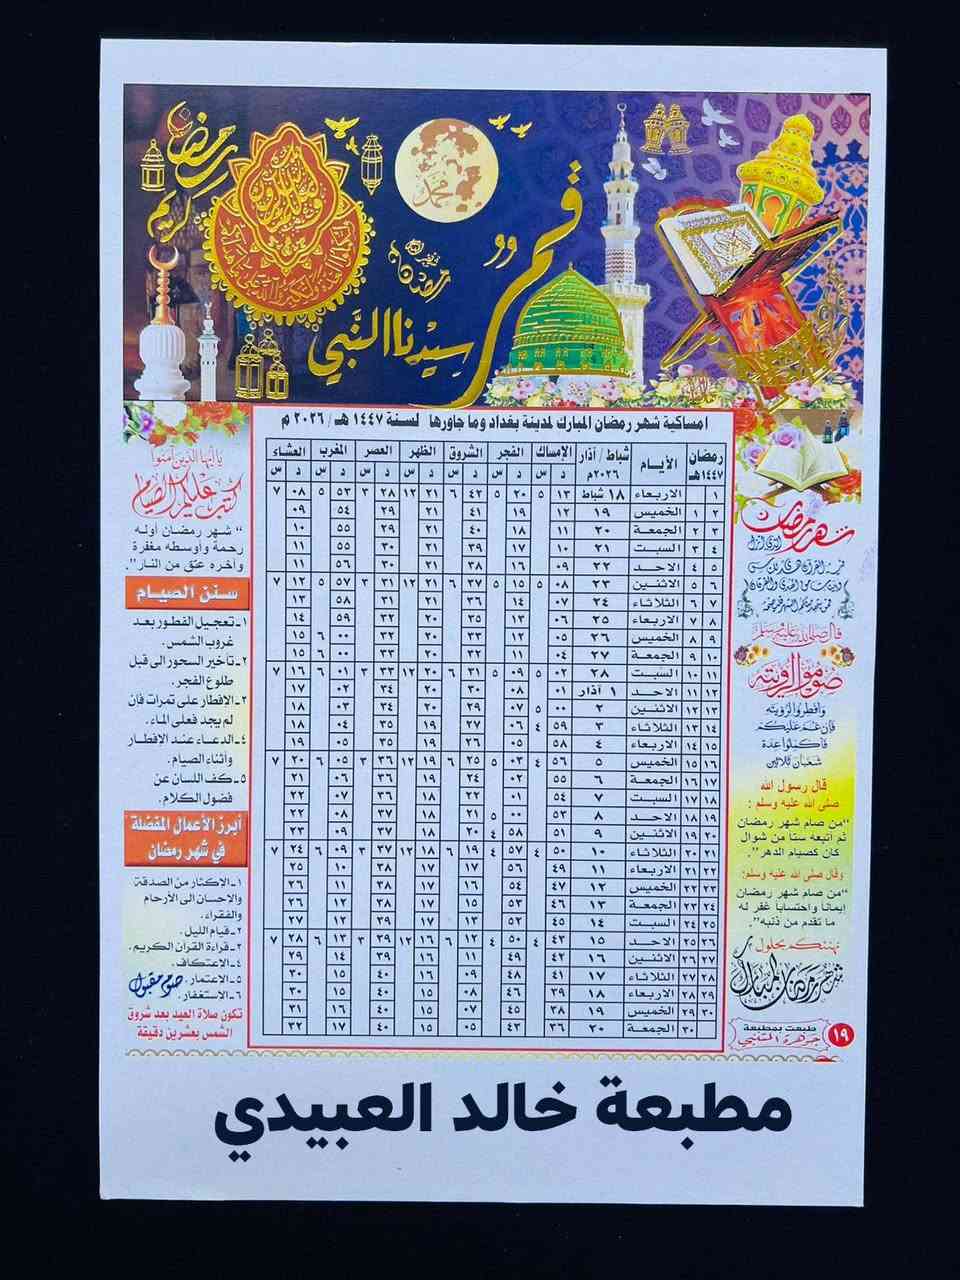 رمضان كريم
محمد
رمضان
قمر
سيدنا النبي
امساكية شهر رمضان المبارك لمدينة بغداد وما جاورها لسنة ١٤٤٧ هـ / ٢٠٢٦ م
رمضان ١٤٤٧هـ الأيـام شباط / آذار ٢٠٢٦م الإمساك الفجر الشروق الظهر العصر المغرب العشاء
د س د س د س د س د س د س د س
١ الاربعاء ١٨ شباط ١٣ ٥ ٢٠ ٥ ٤٢ ٦ ٢١ ١٢ ٢٨ ٣ ٥٣ ٥ ٠٨ ٧
٢ ١ الخميس ١٩ ١٢ ١٩ ٤١ ٢١ ٢٩ ٥٤ ٠٩
٣ ٢ الجمعة ٢٠ ١١ ١٨ ٤٠ ٢١ ٢٩ ٥٥ ١٠
٤ ٣ السبت ٢١ ١٠ ١٧ ٣٩ ٢١ ٣٠ ٥٥ ١١
٥ ٤ الاحد ٢٢ ٠٩ ١٦ ٣٨ ٢١ ٣٠ ٥٦ ١١
٦ ٥ الاثنين ٢٣ ٠٨ ٥ ١٥ ٥ ٣٧ ٦ ٢١ ١٢ ٣١ ٣ ٥٧ ٥ ١٢ ٧
٧ ٦ الثلاثاء ٢٤ ٠٧ ١٤ ٣٦ ٢١ ٣١ ٥٨ ١٣
٨ ٧ الاربعاء ٢٥ ٠٦ ١٣ ٣٥ ٢٠ ٣٢ ٥٩ ١٤
٩ ٨ الخميس ٢٦ ٠٥ ١٢ ٣٣ ٢٠ ٣٢ ٠٠ ٦ ١٥
١٠ ٩ الجمعة ٢٧ ٠٤ ١١ ٣٢ ٢٠ ٣٣ ٠٠ ٦ ١٥
١١ ١٠ السبت ٢٨ ٠٢ ٥ ٠٩ ٥ ٣١ ٦ ٢٠ ١٢ ٣٣ ٣ ٠١ ٦ ١٦ ٧
١٢ ١١ الاحد ١ آذار ٠١ ٠٨ ٣٠ ٢٠ ٣٤ ٠٢ ١٧
١٣ ١٢ الاثنين ٢ ٠٠ ٥ ٠٧ ٢٩ ٢٠ ٣٤ ٠٣ ١٨
١٤ ١٣ الثلاثاء ٣ ٥٩ ٤ ٠٦ ٢٧ ١٩ ٣٥ ٠٤ ١٨
١٥ ١٤ الاربعاء ٤ ٥٨ ٠٥ ٢٦ ١٩ ٣٥ ٠٥ ١٩
١٦ ١٥ الخميس ٥ ٥٦ ٤ ٠٣ ٥ ٢٥ ٦ ١٩ ١٢ ٣٦ ٣ ٠٥ ٦ ٢٠ ٧
١٧ ١٦ الجمعة ٦ ٥٥ ٠٢ ٢٤ ١٩ ٣٦ ٠٦ ٢١
١٨ ١٧ السبت ٧ ٥٤ ٠١ ٢٢ ١٨ ٣٦ ٠٧ ٢٢
١٩ ١٨ الاحد ٨ ٥٣ ٠٠ ٥ ٢١ ١٨ ٣٧ ٠٨ ٢٢
٢٠ ١٩ الاثنين ٩ ٥١ ٥٨ ٤ ٢٠ ١٨ ٣٧ ٠٩ ٢٣
٢١ ٢٠ الثلاثاء ١٠ ٥٠ ٤ ٥٧ ٤ ١٩ ٦ ١٨ ١٢ ٣٧ ٣ ٠٩ ٦ ٢٤ ٧
٢٢ ٢١ الاربعاء ١١ ٤٩ ٥٦ ١٧ ١٧ ٣٨ ١٠ ٢٥
٢٣ ٢٢ الخميس ١٢ ٤٧ ٥٤ ١٦ ١٧ ٣٨ ١١ ٢٦
٢٤ ٢٣ الجمعة ١٣ ٤٦ ٥٣ ١٥ ١٧ ٣٨ ١٢ ٢٦
٢٥ ٢٤ السبت ١٤ ٤٥ ٥٢ ١٣ ١٧ ٣٩ ١٢ ٢٧
٢٦ ٢٥ الاحد ١٥ ٤٣ ٤ ٥٠ ٤ ١٢ ٦ ١٦ ١٢ ٣٩ ٣ ١٣ ٦ ٢٨ ٧
٢٧ ٢٦ الاثنين ١٦ ٤٢ ٤٩ ١١ ١٦ ٣٩ ١٤ ٢٩
٢٨ ٢٧ الثلاثاء ١٧ ٤١ ٤٨ ٠٩ ١٦ ٤٠ ١٥ ٣٠
٢٩ ٢٨ الاربعاء ١٨ ٣٩ ٤٦ ٠٨ ١٥ ٤٠ ١٥ ٣٠
٣٠ ٢٩ الخميس ١٩ ٣٨ ٤٥ ٠٧ ١٥ ٤٠ ١٦ ٣١
٣٠ الجمعة ٢٠ ٣٦ ٤٣ ٠٥ ١٥ ٤٠ ١٧ ٣٢
شهر رمضان
الذي انزل
فيه القرآن هدى للناس
وبينات من الهدى والفرقان
فمن شهد منكم الشهر فليصمه
قال صلى الله عليه وسلم
صوموا لرؤيته
وأفطروا لرؤيته
فإن غم عليكم
فأكملوا عدة
شعبان ثلاثين
قال رسول الله
صلى الله عليه وسلم :
"من صام شهر رمضان
ثم أتبعه ستاً من شوال
كان كصيام الدهر".
وقال صلى الله عليه وسلم:
"من صام شهر رمضان
إيماناً واحتساباً غفر له
ما تقدم من ذنبه".
نهنئكم بحلول
شهر رمضان المبارك
١٩ طبعت بمطبعة
جوهرة المتنبي
يا أيها الذين آمنوا
كتب عليكم الصيام
"شهر رمضان أوله
رحمة وأوسطه مغفرة
وآخره عتق من النار".
سنن الصيام
١- تعجيل الفطور بعد
غروب الشمس.
٢- تأخير السحور الى قبل
طلوع الفجر.
٣- الإفطار على تمرات فأن
لم يجد فعلى الماء.
٤- الدعاء عند الإفطار
وأثناء الصيام.
٥- كف اللسان عن
فضول الكلام.
أبرز الأعمال المفضلة
في شهر رمضان
١- الإكثار من الصدقة
والإحسان الى الأرحام
والفقراء.
٢- قيام الليل.
٣- قراءة القرآن الكريم.
٤- الإعتكاف.
٥- الاعتمار.
٦- الإستغفار.
صوم مقبول
تكون صلاة العيد بعد شروق
الشمس بعشرين دقيقة
مطبعة خالد العبيدي